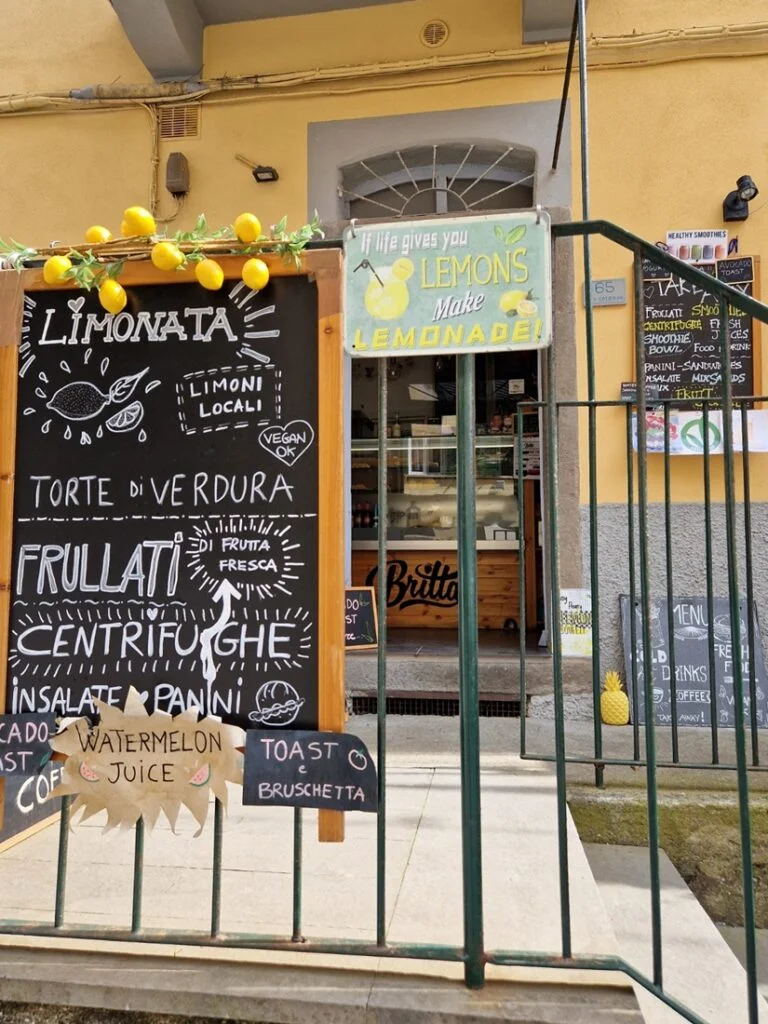 LIMONATA
LIMONI
LOCALI
VEGAN
OK
TORTE DI VERDURA
FRULLATI
DI FRUTTA
FRESCA
CENTRIFUGHE
INSALATE PANINI
WATERMELON
JUICE
TOAST
e
BRUSCHETTA
If life gives you
LEMONS
Make
LEMONADE!
65
Britta
HEALTHY SMOOTHIES
AVOCADO
TOAST
FRULLATI
CENTRIFUGHE
SMOOTHIE
BOWL FOOD
PANINI-SANDWICHES
INSALATE MIX SALADS
MENU
DRINKS
FRESH
FOOD
COFFEE
TAKE AWAY!